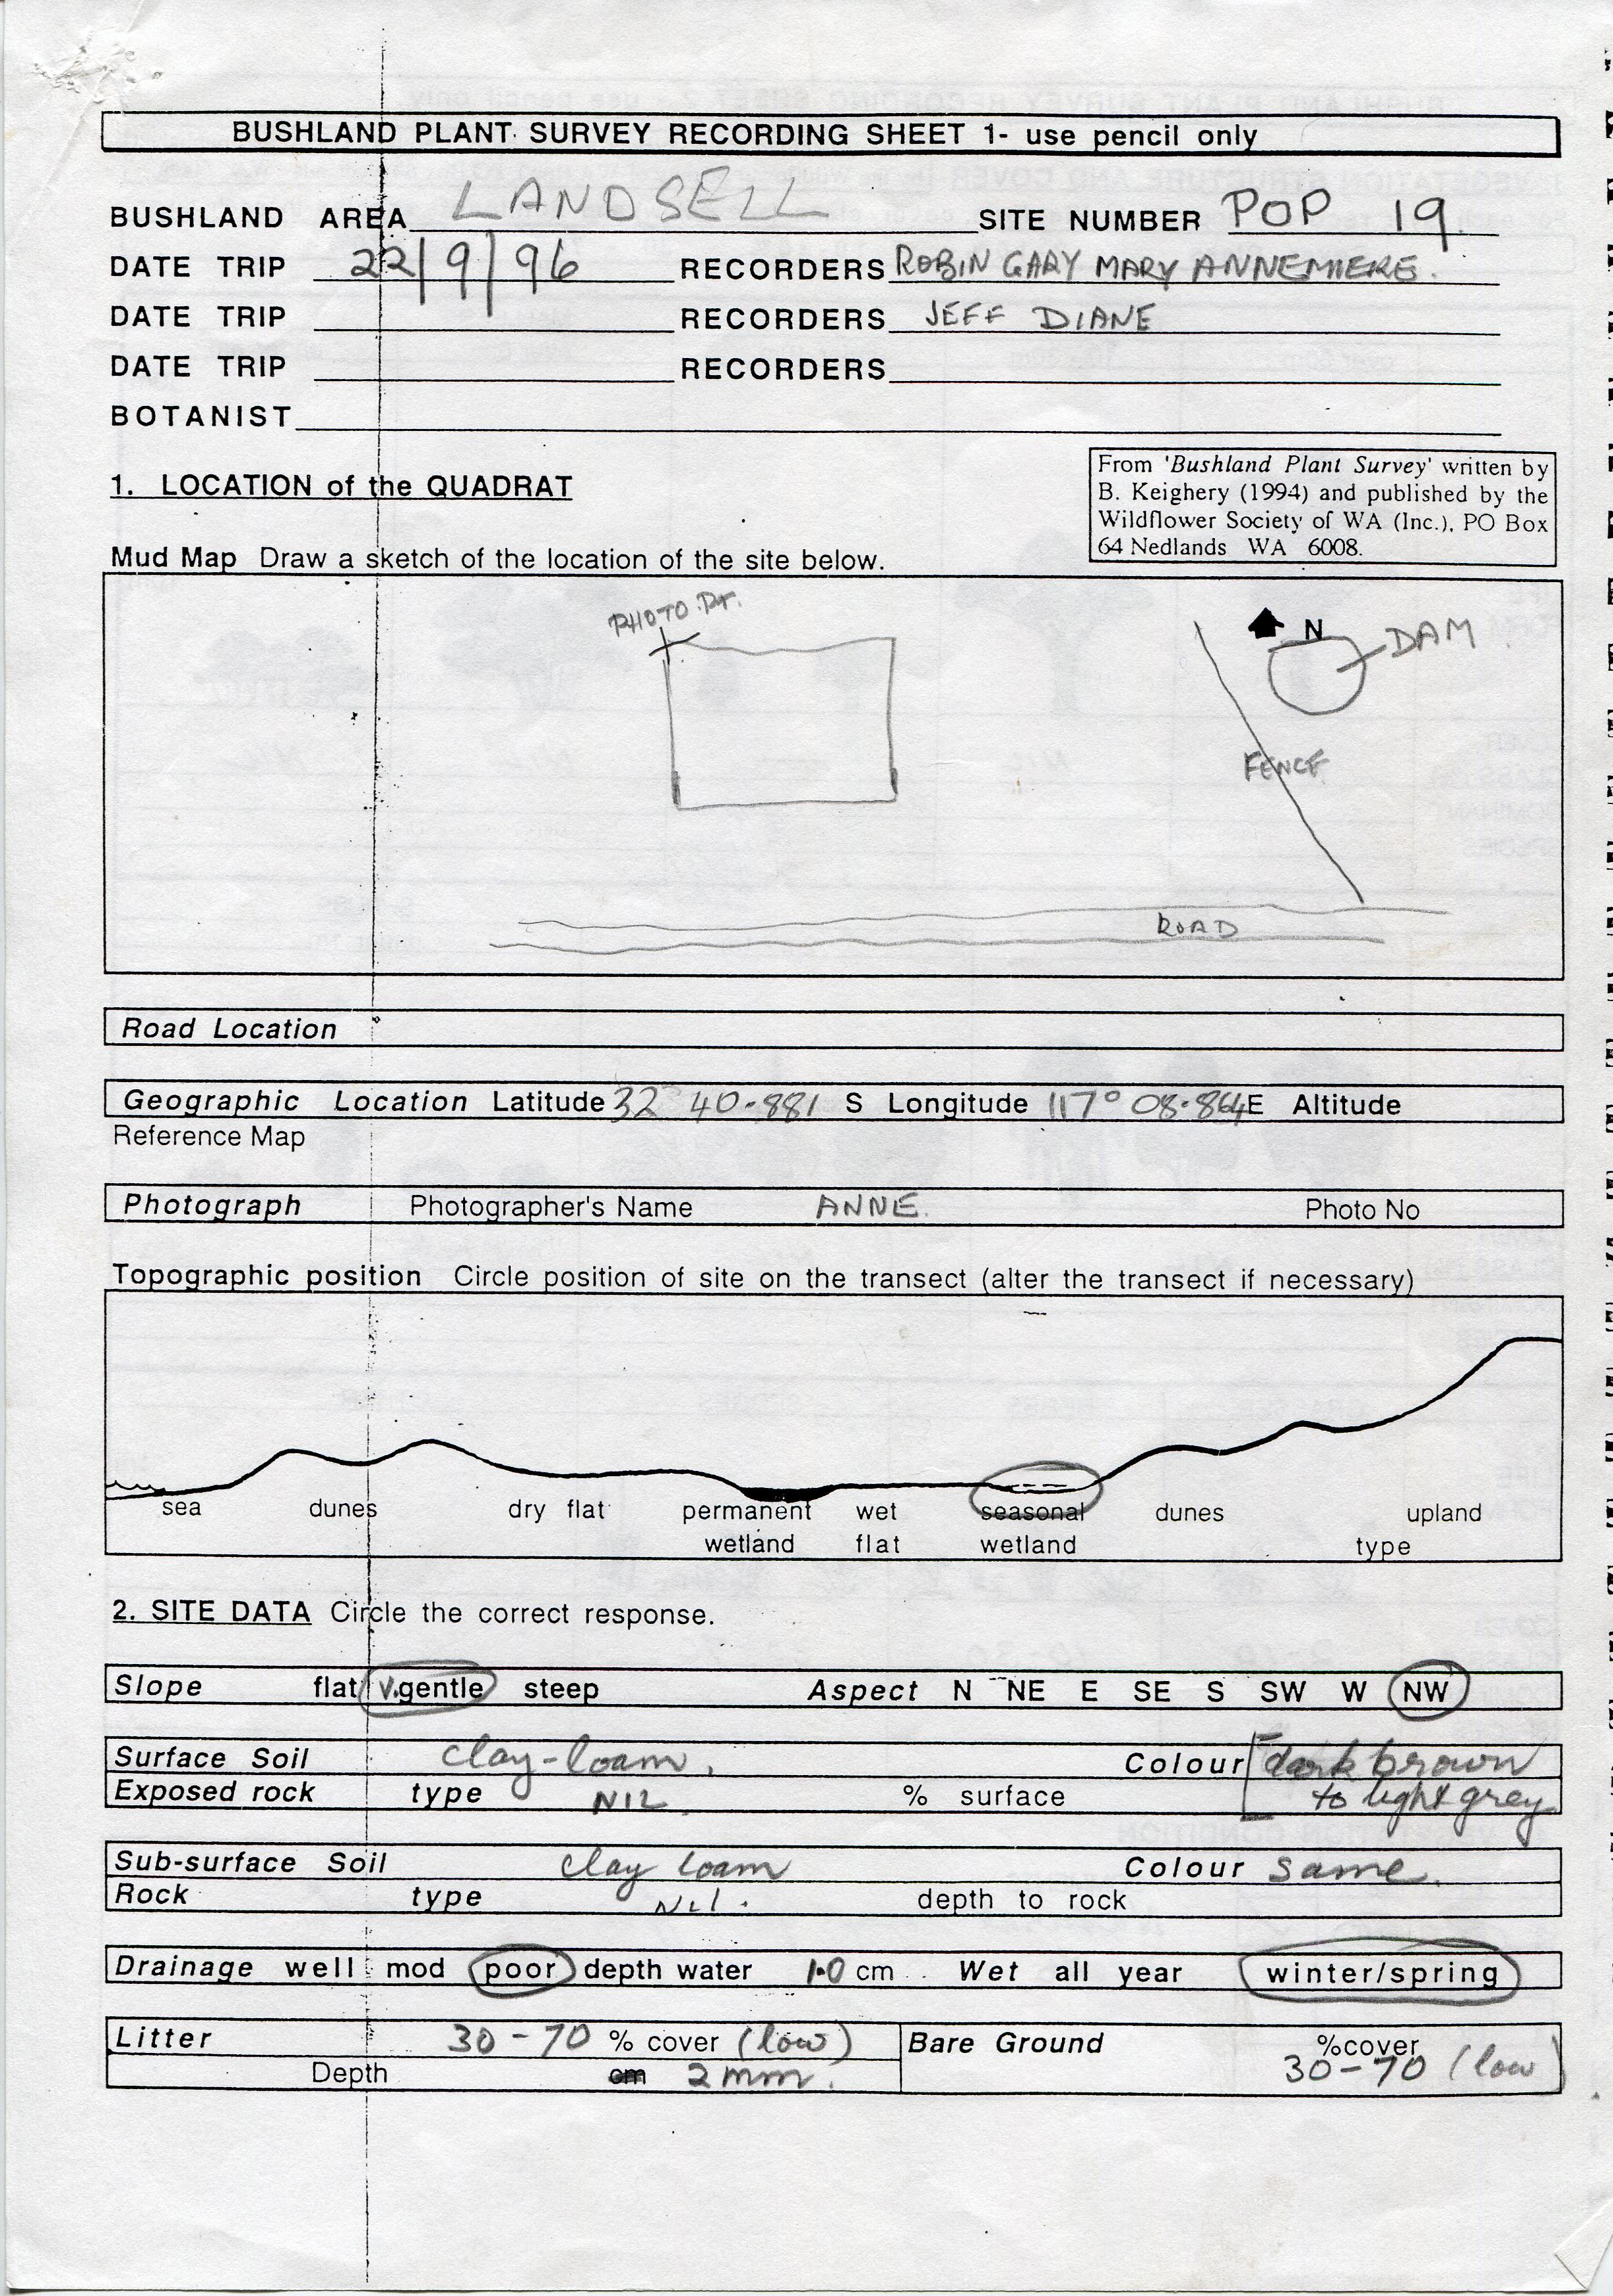 BUSHLAND PLANT SURVEY RECORDING SHEET 1- use pencil only
BUSHLAND AREA LANDSELL SITE NUMBER POP 19
DATE TRIP 22/9/96 RECORDERS ROBIN GARY MARY ANNEMIEKE.
DATE TRIP RECORDERS JEFF DIANE
DATE TRIP RECORDERS
BOTANIST
1. LOCATION of the QUADRAT
From 'Bushland Plant Survey' written by
B. Keighery (1994) and published by the
Wildflower Society of WA (Inc.), PO Box
64 Nedlands WA 6008.
Mud Map Draw a sketch of the location of the site below.
PHOTO.PT.
N
DAM
FENCE
ROAD
Road Location
Geographic Location Latitude 32° 40.881 S Longitude 117° 08.864 E Altitude
Reference Map
Photograph Photographer's Name ANNE. Photo No
Topographic position Circle position of site on the transect (alter the transect if necessary)
sea dunes dry flat permanent wet seasonal dunes upland
wetland flat wetland type
2. SITE DATA Circle the correct response.
Slope flat v.gentle steep Aspect N NE E SE S SW W NW
Surface Soil clay-loam. Colour dark brown
Exposed rock type NIL. % surface to light grey
Sub-surface Soil clay loam Colour same.
Rock type Nil. depth to rock
Drainage well mod poor depth water 1.0 cm Wet all year winter/spring
Litter 30-70 % cover (low) Bare Ground %cover
Depth cm 2mm. 30-70 (low)